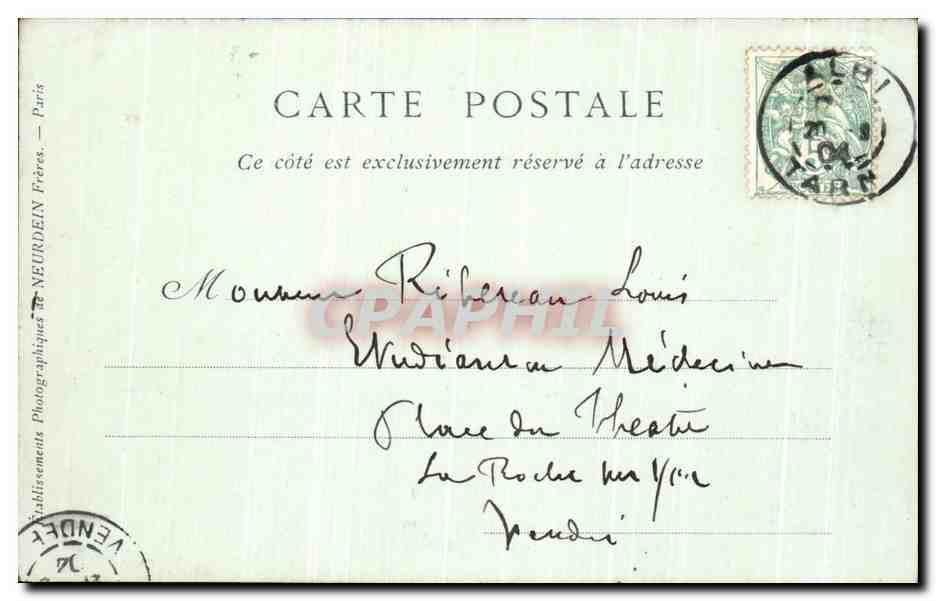 CARTE POSTALE
Ce côté est exclusivement réservé à l'adresse
Monsieur Louis
Etudiant en Médecine
Place du Théâtre
La Roche sur Yon
Vendée
Établissements Photographiques de NEURDEIN Frères. — Paris
ALBI
04
TARN
VENDEE
CPAPHIL